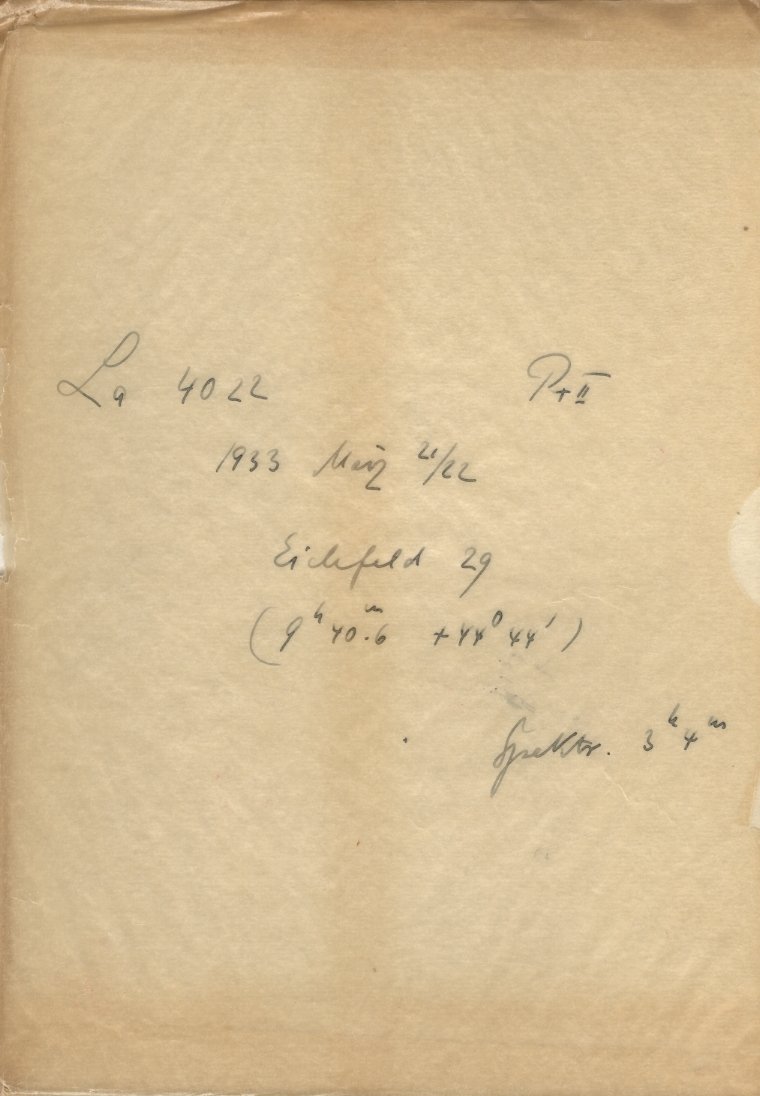 La 4022 Pr II
1933 März 21/22
Eichfeld 29
(9ʰ 40ᵐ.6 +44⁰ 44')
Spektr. 3ʰ 4ᵐ